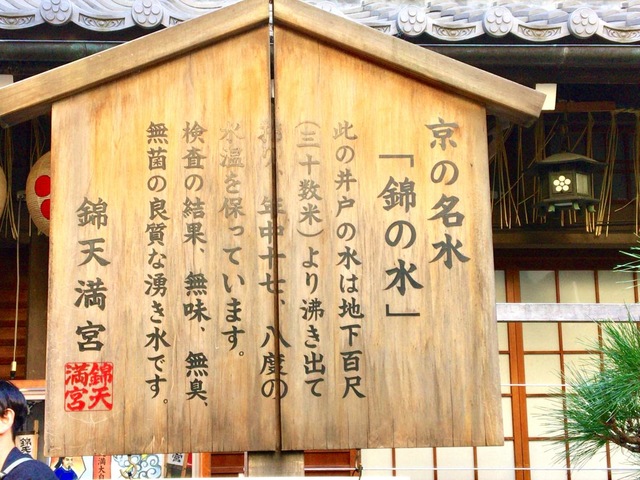 京の名水
「錦の水」
此の井戸の水は地下百尺
(三十数米)より沸き出て
年中十七、八度の
水温を保っています。
検査の結果、無味、無臭、
無菌の良質な湧き水です。
錦天満宮
錦天
満宮